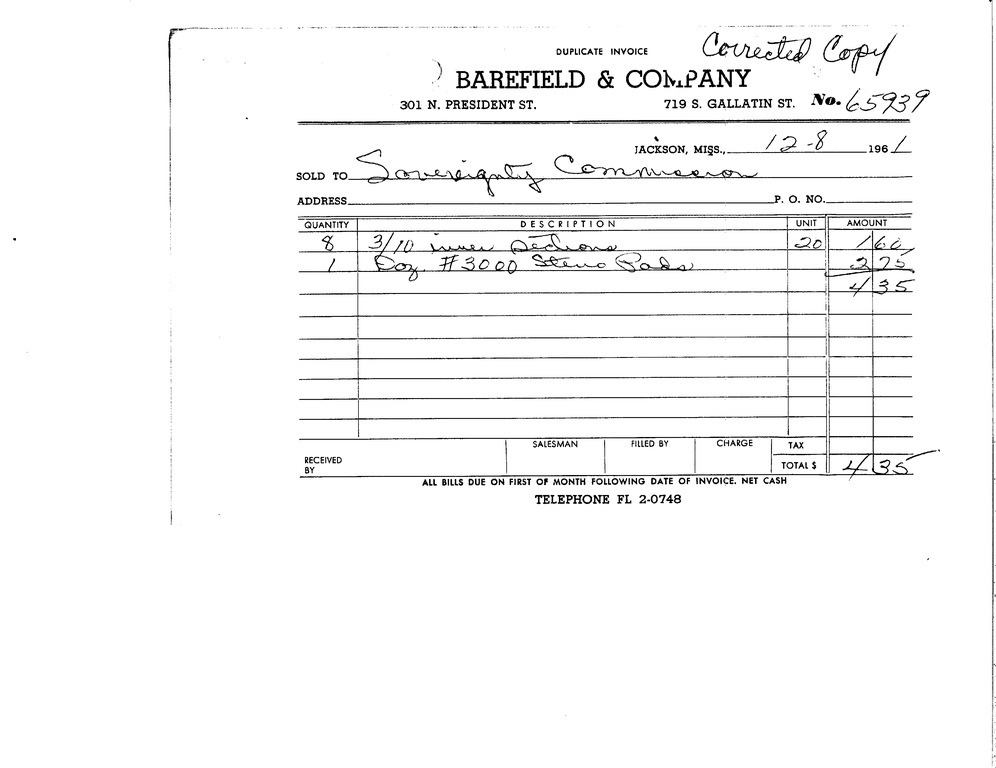 DUPLICATE INVOICE
Corrected Copy
BAREFIELD & COMPANY
301 N. PRESIDENT ST. 719 S. GALLATIN ST. No. 65939
JACKSON, MISS., 12-8 1961
SOLD TO Sovereignty Commission
ADDRESS P. O. NO.
QUANTITY DESCRIPTION UNIT AMOUNT
8 3/10 inner sections 20 1 60
1 Doz #3000 Steno Pads 2 75
4 35
SALESMAN FILLED BY CHARGE TAX
RECEIVED BY TOTAL $ 4 35
ALL BILLS DUE ON FIRST OF MONTH FOLLOWING DATE OF INVOICE. NET CASH
TELEPHONE FL 2-0748